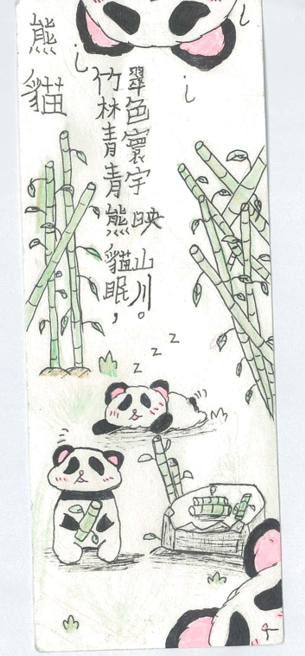 熊貓
竹林青青熊貓眠，
翠色寰宇映山川。
z z z z